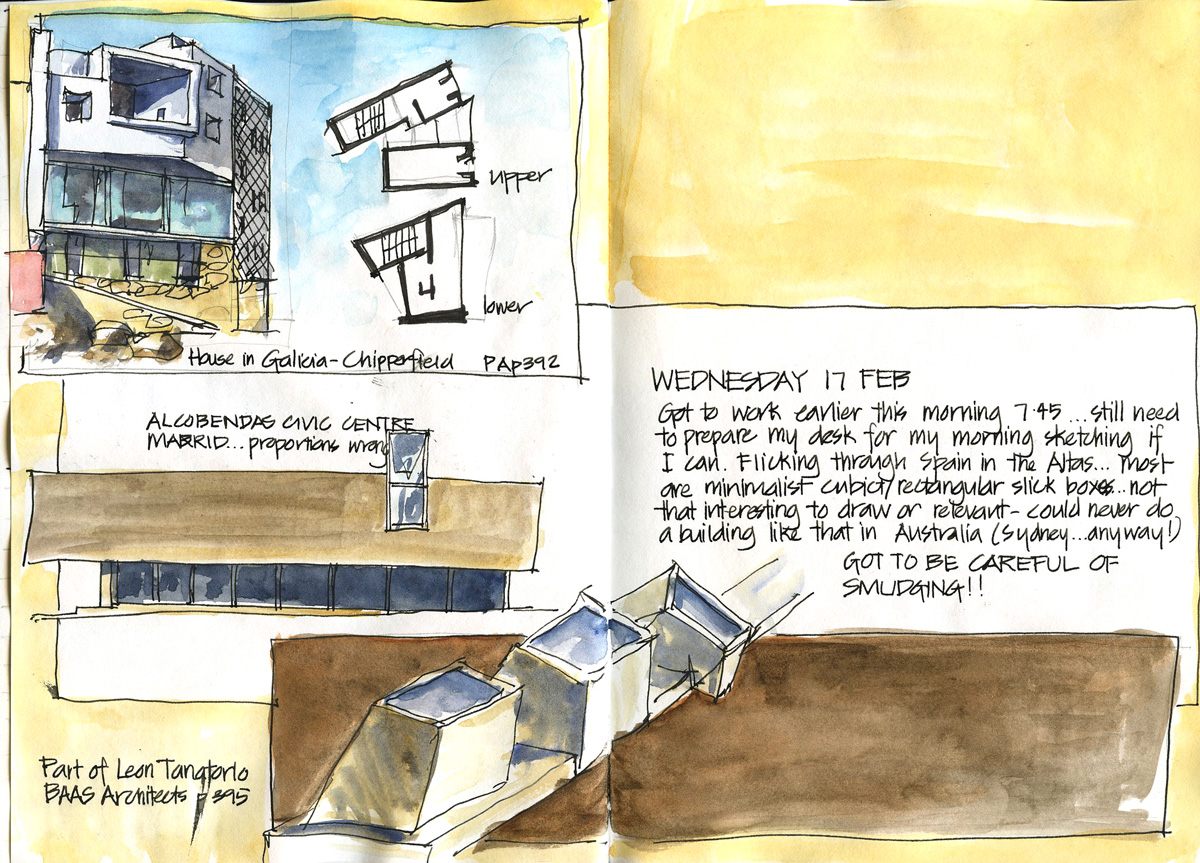 upper
lower
House in Galicia - Chipperfield PA p392
ALCOBENDAS CIVIC CENTRE
MADRID... proportions wrong
WEDNESDAY 17 FEB
Got to work earlier this morning 7.45 ...still need
to prepare my desk for my morning sketching if
I can. Flicking through Spain in the Altas... most
are minimalist cubict/rectangular slick boxes...not
that interesting to draw or relevant - could never do
a building like that in Australia (Sydney...anyway!)
GOT TO BE CAREFUL OF
SMUDGING!!
Part of Leon Tanatorio
BAAS Architects p 395